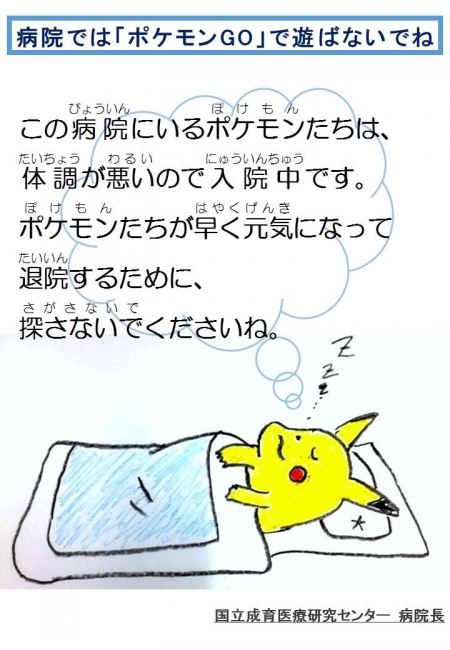 病院では「ポケモンGO」で遊ばないでね
びょういん ぽけもん
この病院にいるポケモンたちは、
たいちょう わるい にゅういんちゅう
体調が悪いので入院中です。
ぽけもん はやくげんき
ポケモンたちが早く元気になって
たいいん
退院するために、
さがさないで
探さないでくださいね。
Z
Z
Z
Z
国立成育医療研究センター 病院長